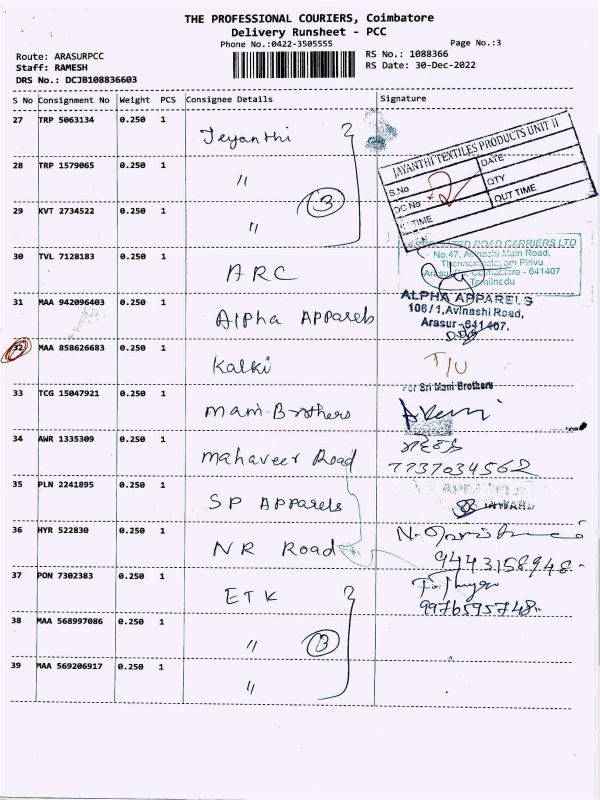 THE PROFESSIONAL COURIERS, Coimbatore
Delivery Runsheet - PCC
Phone No.:0422-3505555
Page No.:3
Route: ARASURPCC
Staff: RAMESH
DRS No.: DCJB108836603
RS No.: 1088366
RS Date: 30-Dec-2022
S No Consignment No Weight PCS Consignee Details Signature
27 TRP 5063134 0.250 1 Jeyanthi
JAYANTHI TEXTILES PRODUCTS UNIT II
S.No DATE
DC No QTY
TIME OUT TIME
28 TRP 1579065 0.250 1 "
3
29 KVT 2734522 0.250 1 "
30 TVL 7128183 0.250 1 ARC
ROAD CARRIERS LTD
No.47, Avinashi Main Road,
Pirivu
641407
Tamilnadu
31 MAA 942096403 0.250 1 Alpha Apparels
ALPHA APPARELS
106/1, Avinashi Road,
Arasur-641407.
32 MAA 858626683 0.250 1 Kalki
33 TCG 15047921 0.250 1 Mani Brothers
For Sri Mani Brothers
34 AWR 1335309 0.250 1 Mahaveer Road
7737034562
35 PLN 2241895 0.250 1 SP Apparels
INWARD
36 HYR 522830 0.250 1 NR Road
9443158948
37 PON 7302383 0.250 1 ETK
9976595748
38 MAA 568997086 0.250 1 "
3
39 MAA 569206917 0.250 1 "